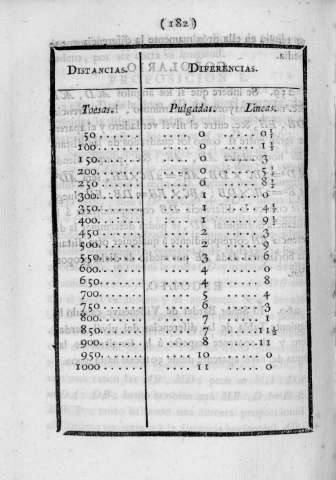 ( 182 )
DISTANCIAS. DIFERENCIAS.
Toesas. Pulgadas. Lineas.
50 0 0⅓
100 0 1⅓
150 0 3
200 0 5⅓
250 0 8⅓
300 1 0
350 1 4⅓
400 1 9⅓
450 2 3
500 2 9
550 3 6
600 4 0
650 4 8
700 5 4
750 6 3
800 7 1
850 7 11½
900 8 11
950 10 0
1000 11 0